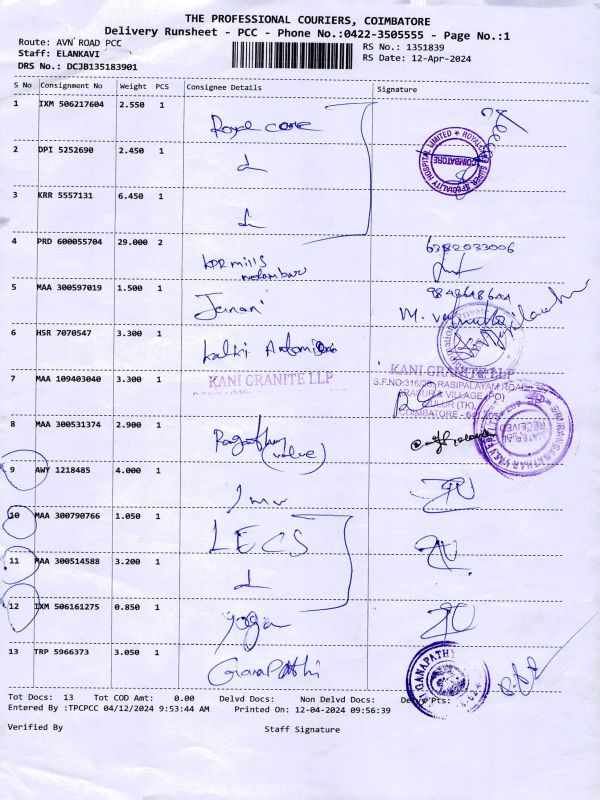 THE PROFESSIONAL COURIERS, COIMBATORE
Delivery Runsheet - PCC - Phone No.:0422-3505555 - Page No.:1
Route: AVN ROAD PCC
Staff: ELANKAVI
DRS No.: DCJB135183901
RS No.: 1351839
RS Date: 12-Apr-2024
S No Consignment No Weight PCS Consignee Details Signature
1 IXM 506217604 2.550 1 Royal care
2 DPI 5252690 2.450 1
ROYALCARE SUPER SPECIALITY HOSPITAL LIMITED
COIMBATORE
3 KRR 5557131 6.450 1
4 PRD 600055704 29.000 2 KPR mills 6382033006
5 MAA 300597019 1.500 1 Janani
6 HSR 7070547 3.300 1
7 MAA 109403040 3.300 1 KANI GRANITE LLP KANI GRANITE LLP
S.F.NO:316/2B, RASIPALAYAM ROAD
ARASUR & VILLAGE (PO)
SULUR (TK),
COIMBATORE - 641
8 MAA 300531374 2.900 1 (value)
MATERIAL
RECEIVED
9 AWY 1218485 4.000 1
10 MAA 300790766 1.050 1 LECS
11 MAA 300514588 3.200 1
12 IXM 506161275 0.850 1 yoga
13 TRP 5966373 3.050 1 GanaPathi
GANAPATHY
Tot Docs: 13 Tot COD Amt: 0.00 Delvd Docs: Non Delvd Docs: Delvd Pts:
Entered By :TPCPCC 04/12/2024 9:53:44 AM Printed On: 12-04-2024 09:56:39
Verified By Staff Signature